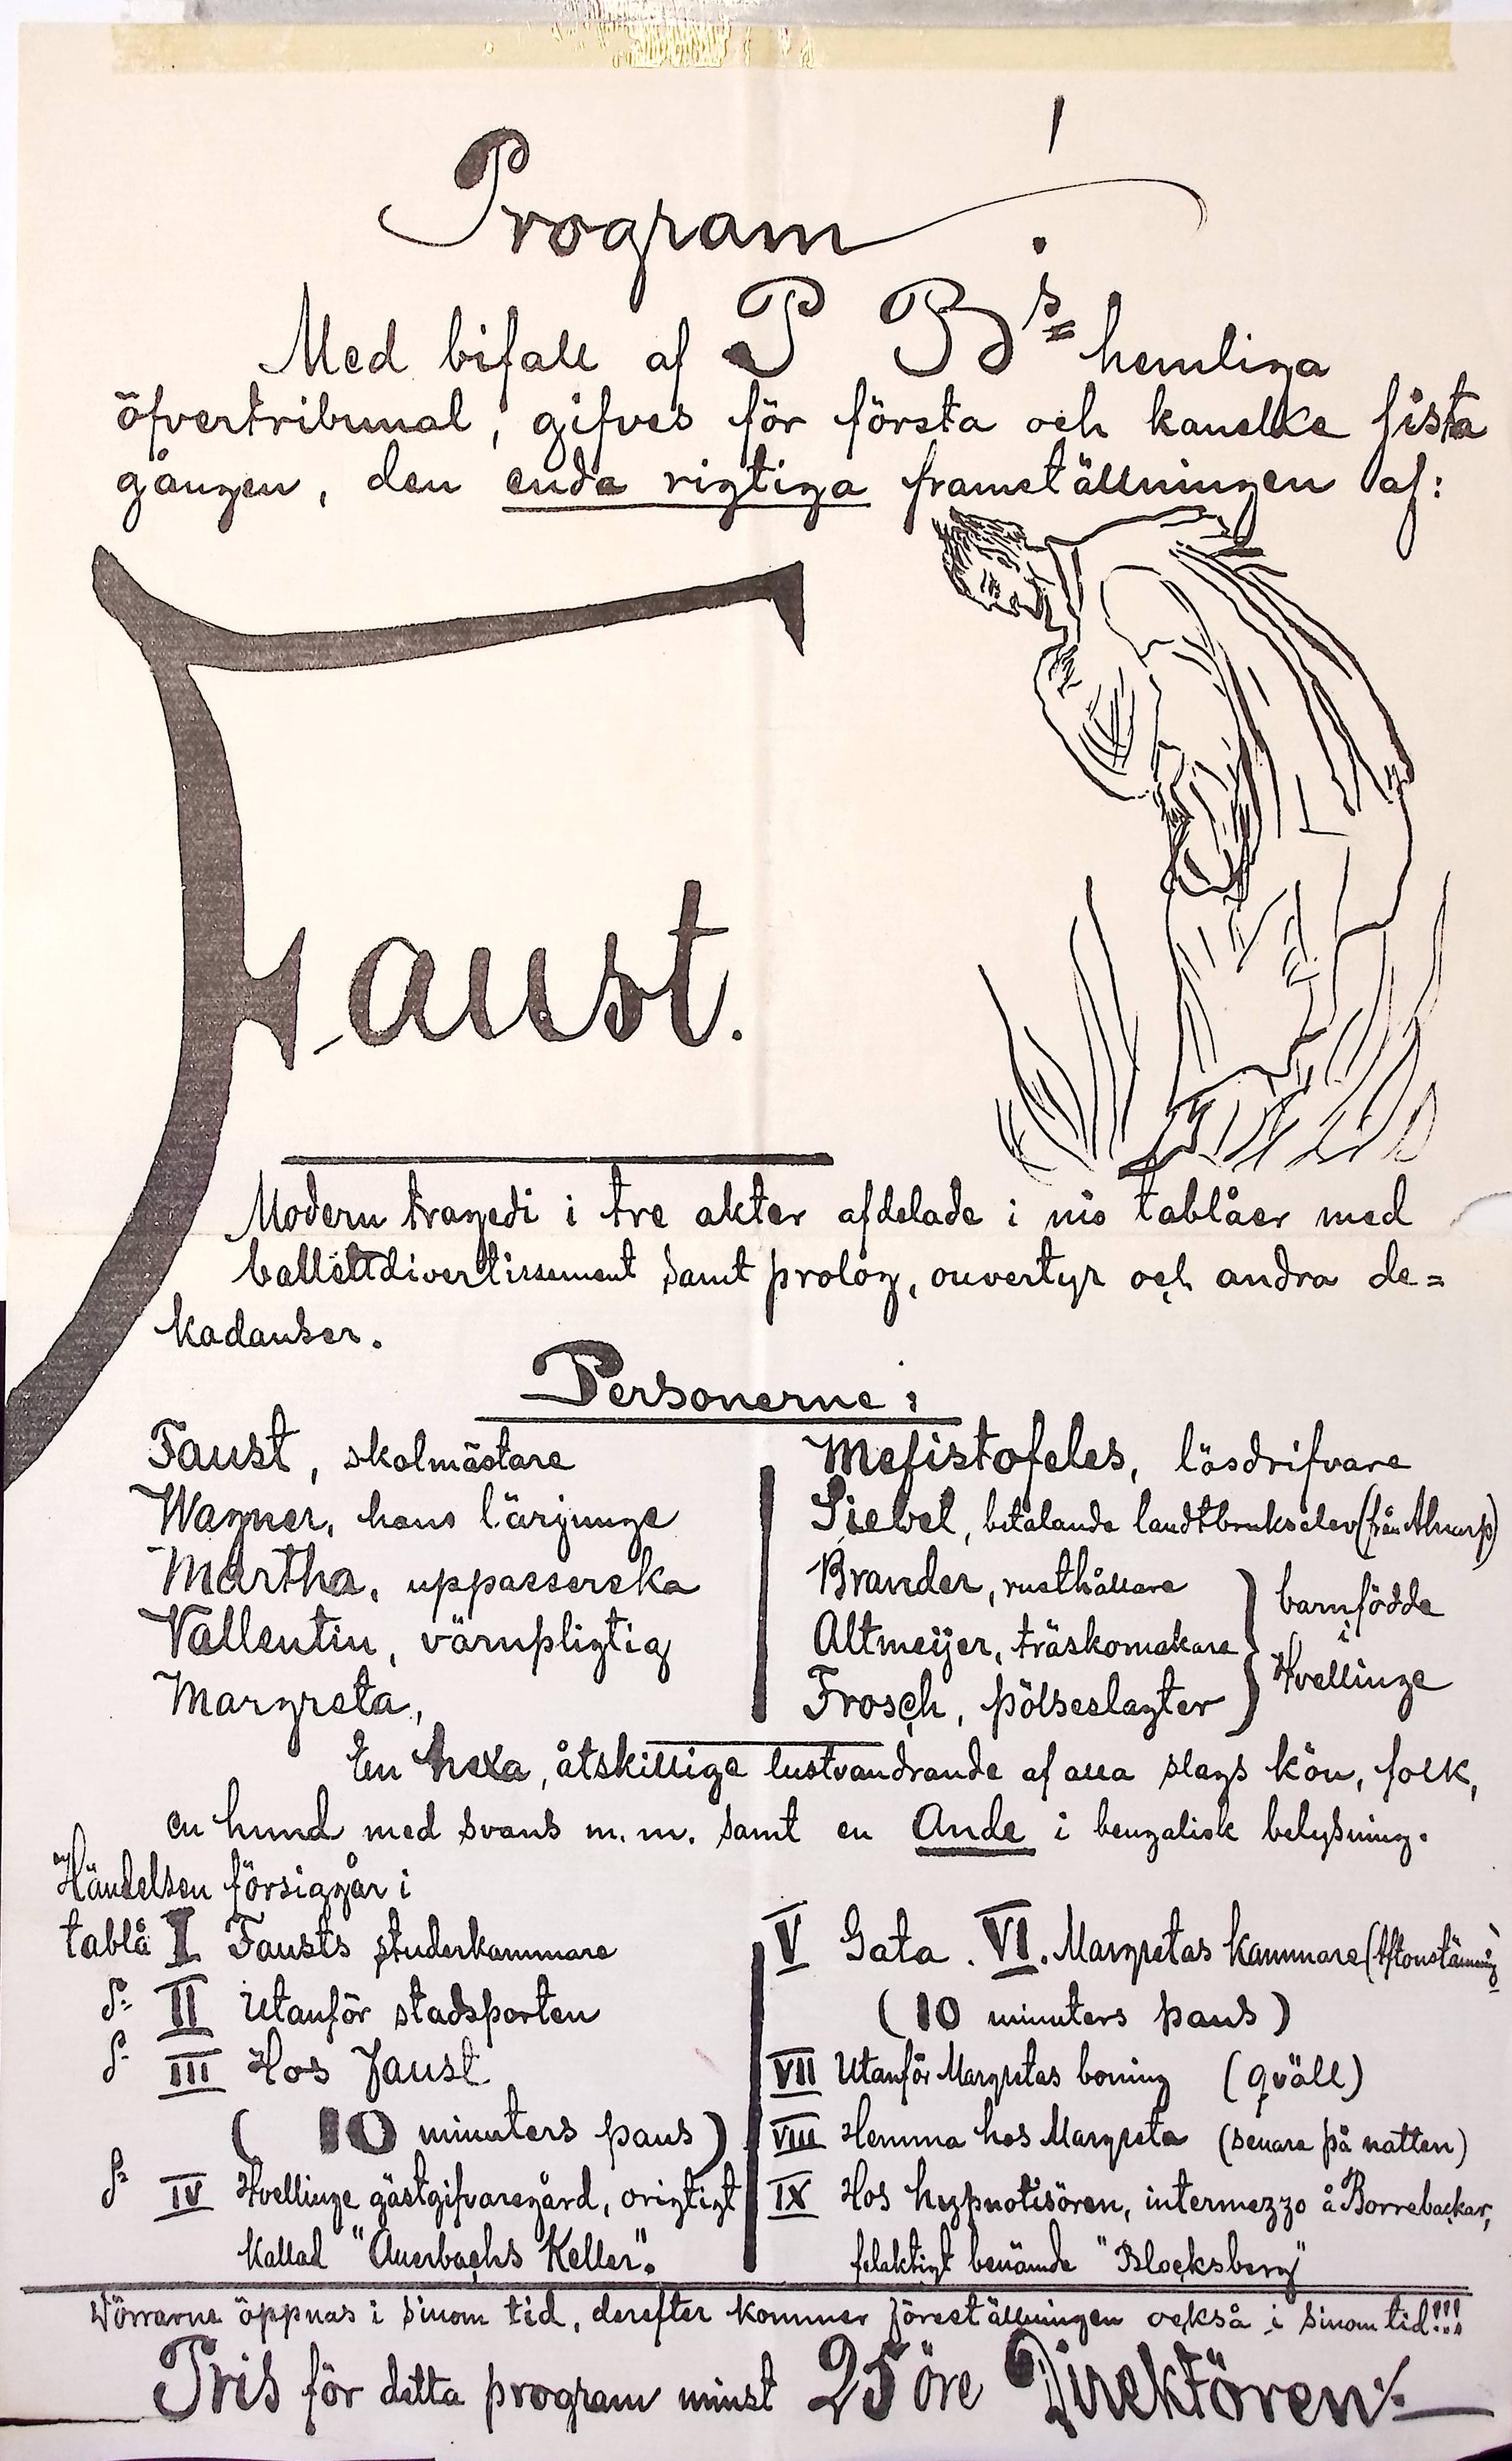 Program!
Med bifall af P Bs hemliga
öfvertribunal, gifves för första och kanske sista
gången, den enda rigtiga framställningen af:
Faust.
Modern tragedi i tre akter afdelade i nio tablåer med
ballettdivertissement samt prolog, ouvertyr och andra de=
kadanser.
Personerne:
Faust, skolmästare
Wagner, hans lärjunge
Martha, uppasserska
Vallentin, värnpligtig
Margreta,
Mefistofeles, lösdrifvare
Siebel, betalande landtbrukselev (från Alnarp)
Brander, rusthållare
Altmeijer, träskomakare
Frosch, pölseslagter
barnfödde
i
Hvellinge
En hexa, åtskillige lustvandrande af alla slags kön, folk,
en hund med svans m.m. samt en Ande i bengalisk belysning.
Händelsen försiggår i
tablå I Fausts studerkammare
d:o II Utanför stadsporten
d:o III Hos Faust
(10 minuters paus)
d:o IV Hvellinge gästgifvaregård, origtigt
kallad "Auerbachs Keller".
V Gata. VI. Margretas kammare (Aftonstämning)
(10 minuters paus)
VII Utanför Margretas boning (qväll)
VIII Hemma hos Margreta (senare på natten)
IX Hos hypnotisören, intermezzo å Borrebackar,
felaktigt benämde "Blocksberg"
Dörrarne öppnas i sinom tid, derefter kommer föreställningen också i sinom tid!!!
Pris för detta program minst 25 öre Direktören